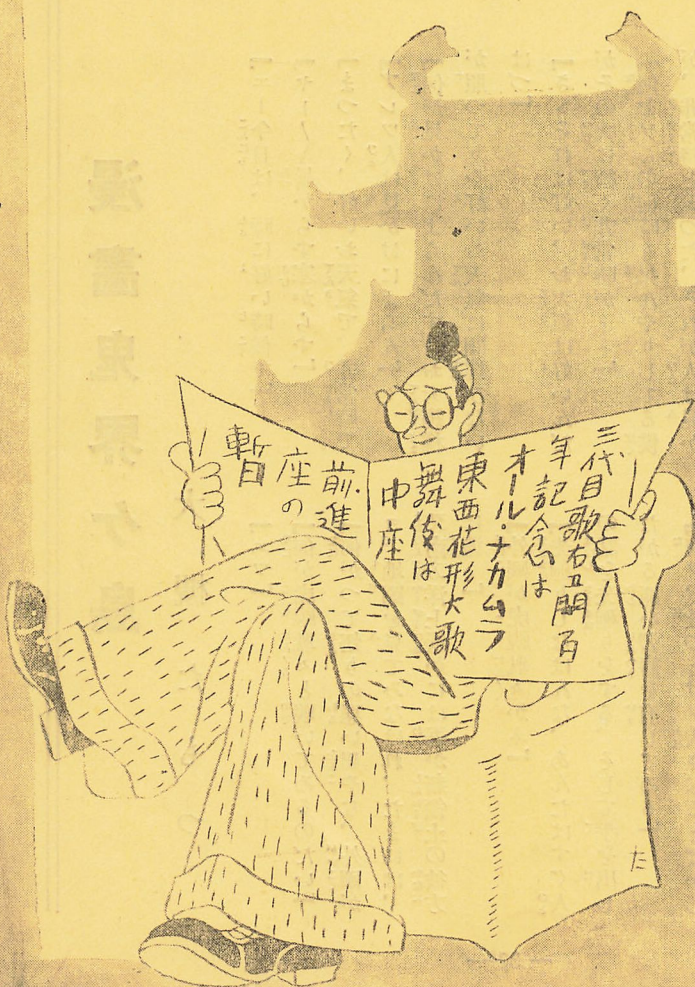 三代目歌右衛門百
年記念は
オール・ナカムラ
東西花形大歌
舞伎は
中座
前進
座の
暫
た